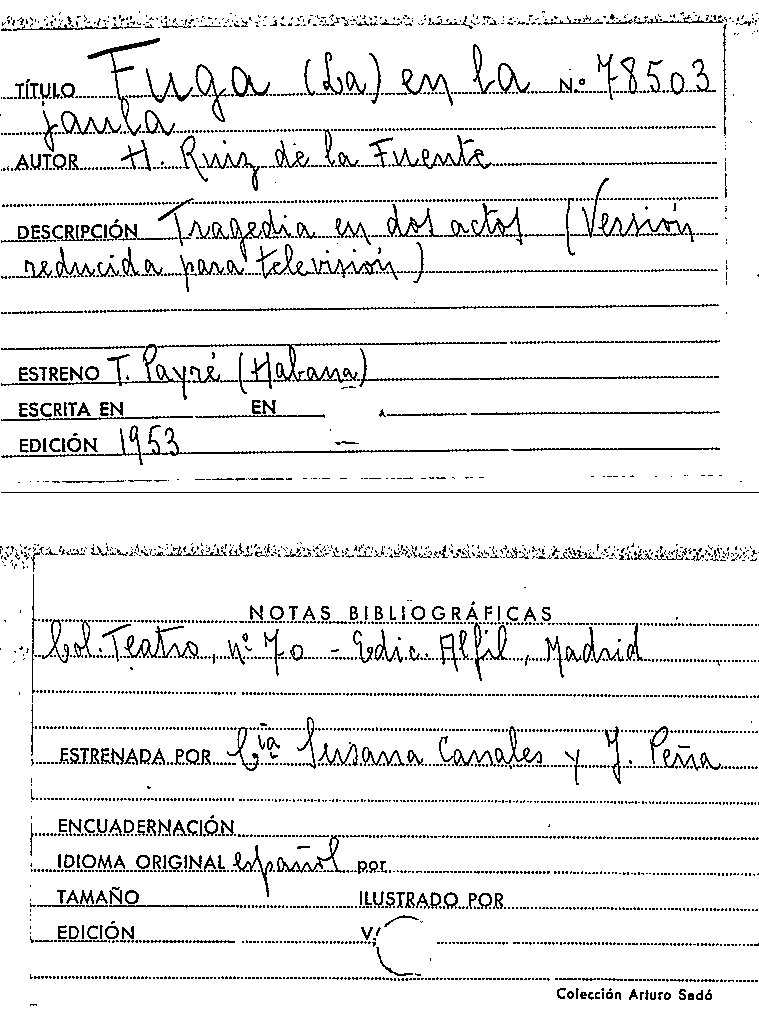 TÍTULO Fuga (La) en la N.º 78503
jaula
AUTOR H. Ruiz de la Fuente
DESCRIPCIÓN Tragedia en dos actos (Versión
reducida para televisión)
ESTRENO T. Payré (Habana)
ESCRITA EN EN
EDICIÓN 1953 —
NOTAS BIBLIOGRÁFICAS
Col. Teatro, nº 70 - Edic. Alfil, Madrid
ESTRENADA POR Cía Susana Canales y J. Peña
ENCUADERNACIÓN
IDIOMA ORIGINAL español por
TAMAÑO ILUSTRADO POR
EDICIÓN V.
Colección Arturo Sedó